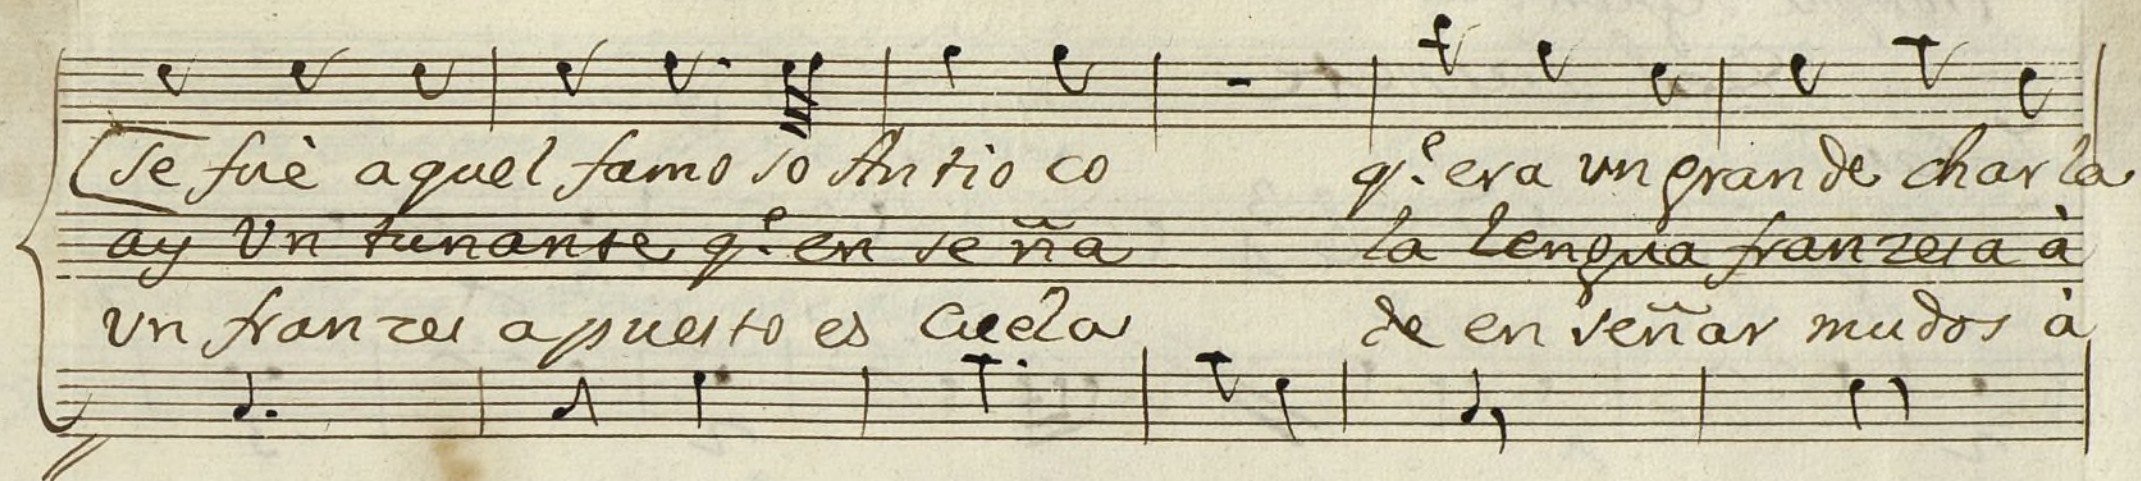 Se fuè aquel famo so Antio co q.e era un grande char la
ay Un tunante q.e en se ña la lengua franzesa à
Un franzes a puesto es cuela de en señar mudos à